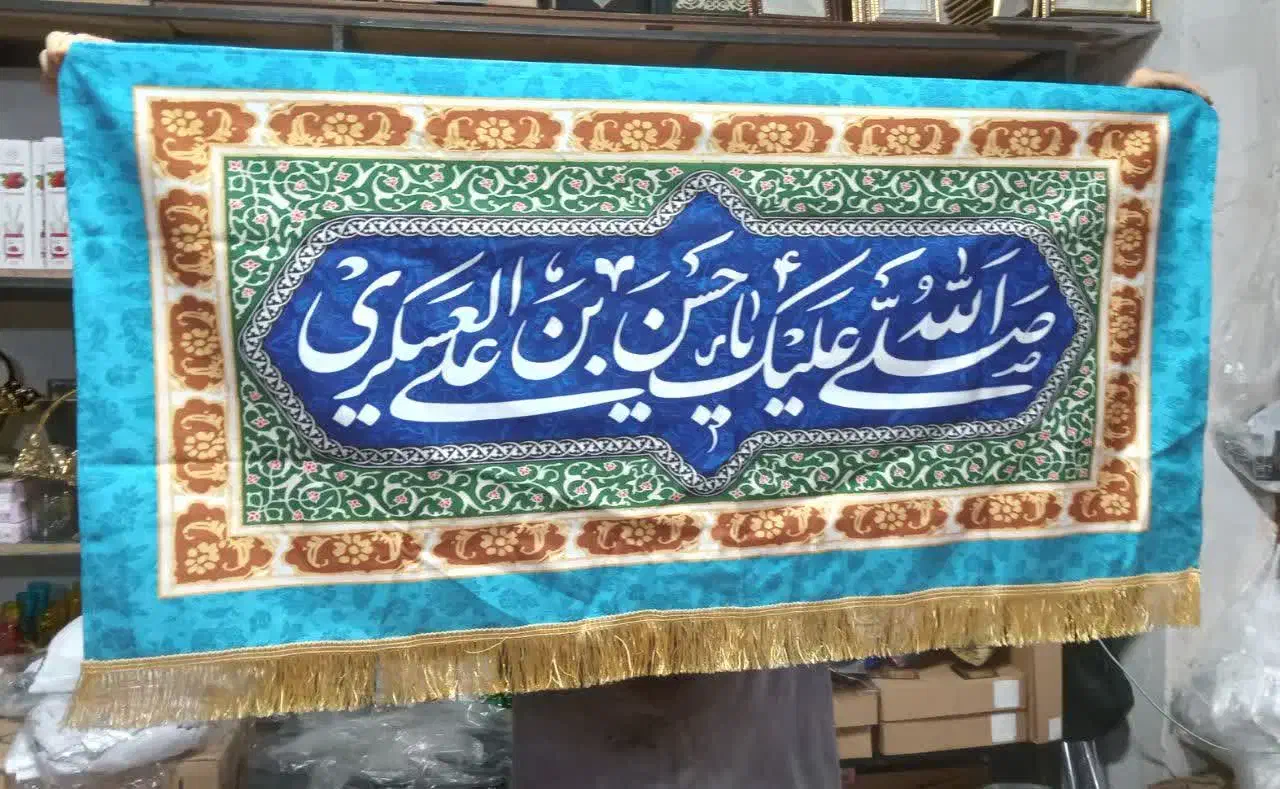 صلی الله علیک یا حسن بن علی العسکری